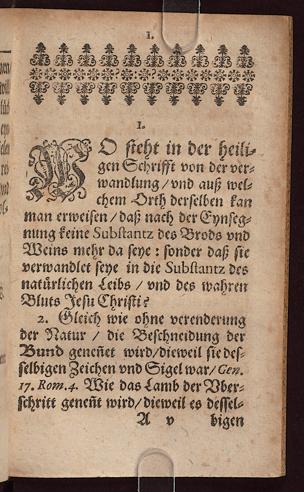 1.
1.
WO steht in der heili-
gen Schrifft von der ver-
wandlung / vnd auß wel-
chem Orth derselben kan
man erweisen / daß nach der Eynseg-
nung keine Substantz des Brods vnd
Weins mehr da seye : sonder daß sie
verwandlet seye in die Substantz des
natürlichen Leibs / vnd des wahren
Bluts Jesu Christi?
2. Gleich wie ohne verenderung
der Natur / die Beschneidung der
Bund geneñet wird / dieweil sie des-
selbigen Zeichen vnd Sigel war / Gen.
17. Rom. 4. Wie das Lamb der Vber-
schritt geneñt wird / dieweil es dessel-
A v bigen